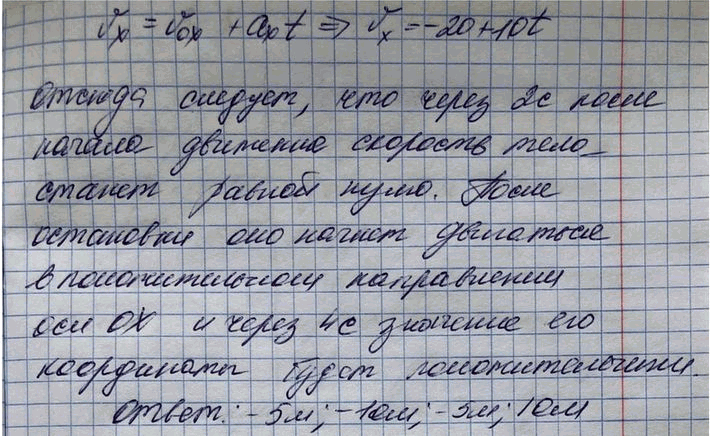 υₓ = υ₀ₓ + aₓt ⇒ υₓ = -20+10t
Отсюда следует, что через 2с после
начала движение скорость тела
станет равной нулю. После
остановки оно начнет двигаться
в положительном направлении
оси OX и через 4с значение его
координаты будет положительными.
Ответ: -5м; -10м; -5м; 10м